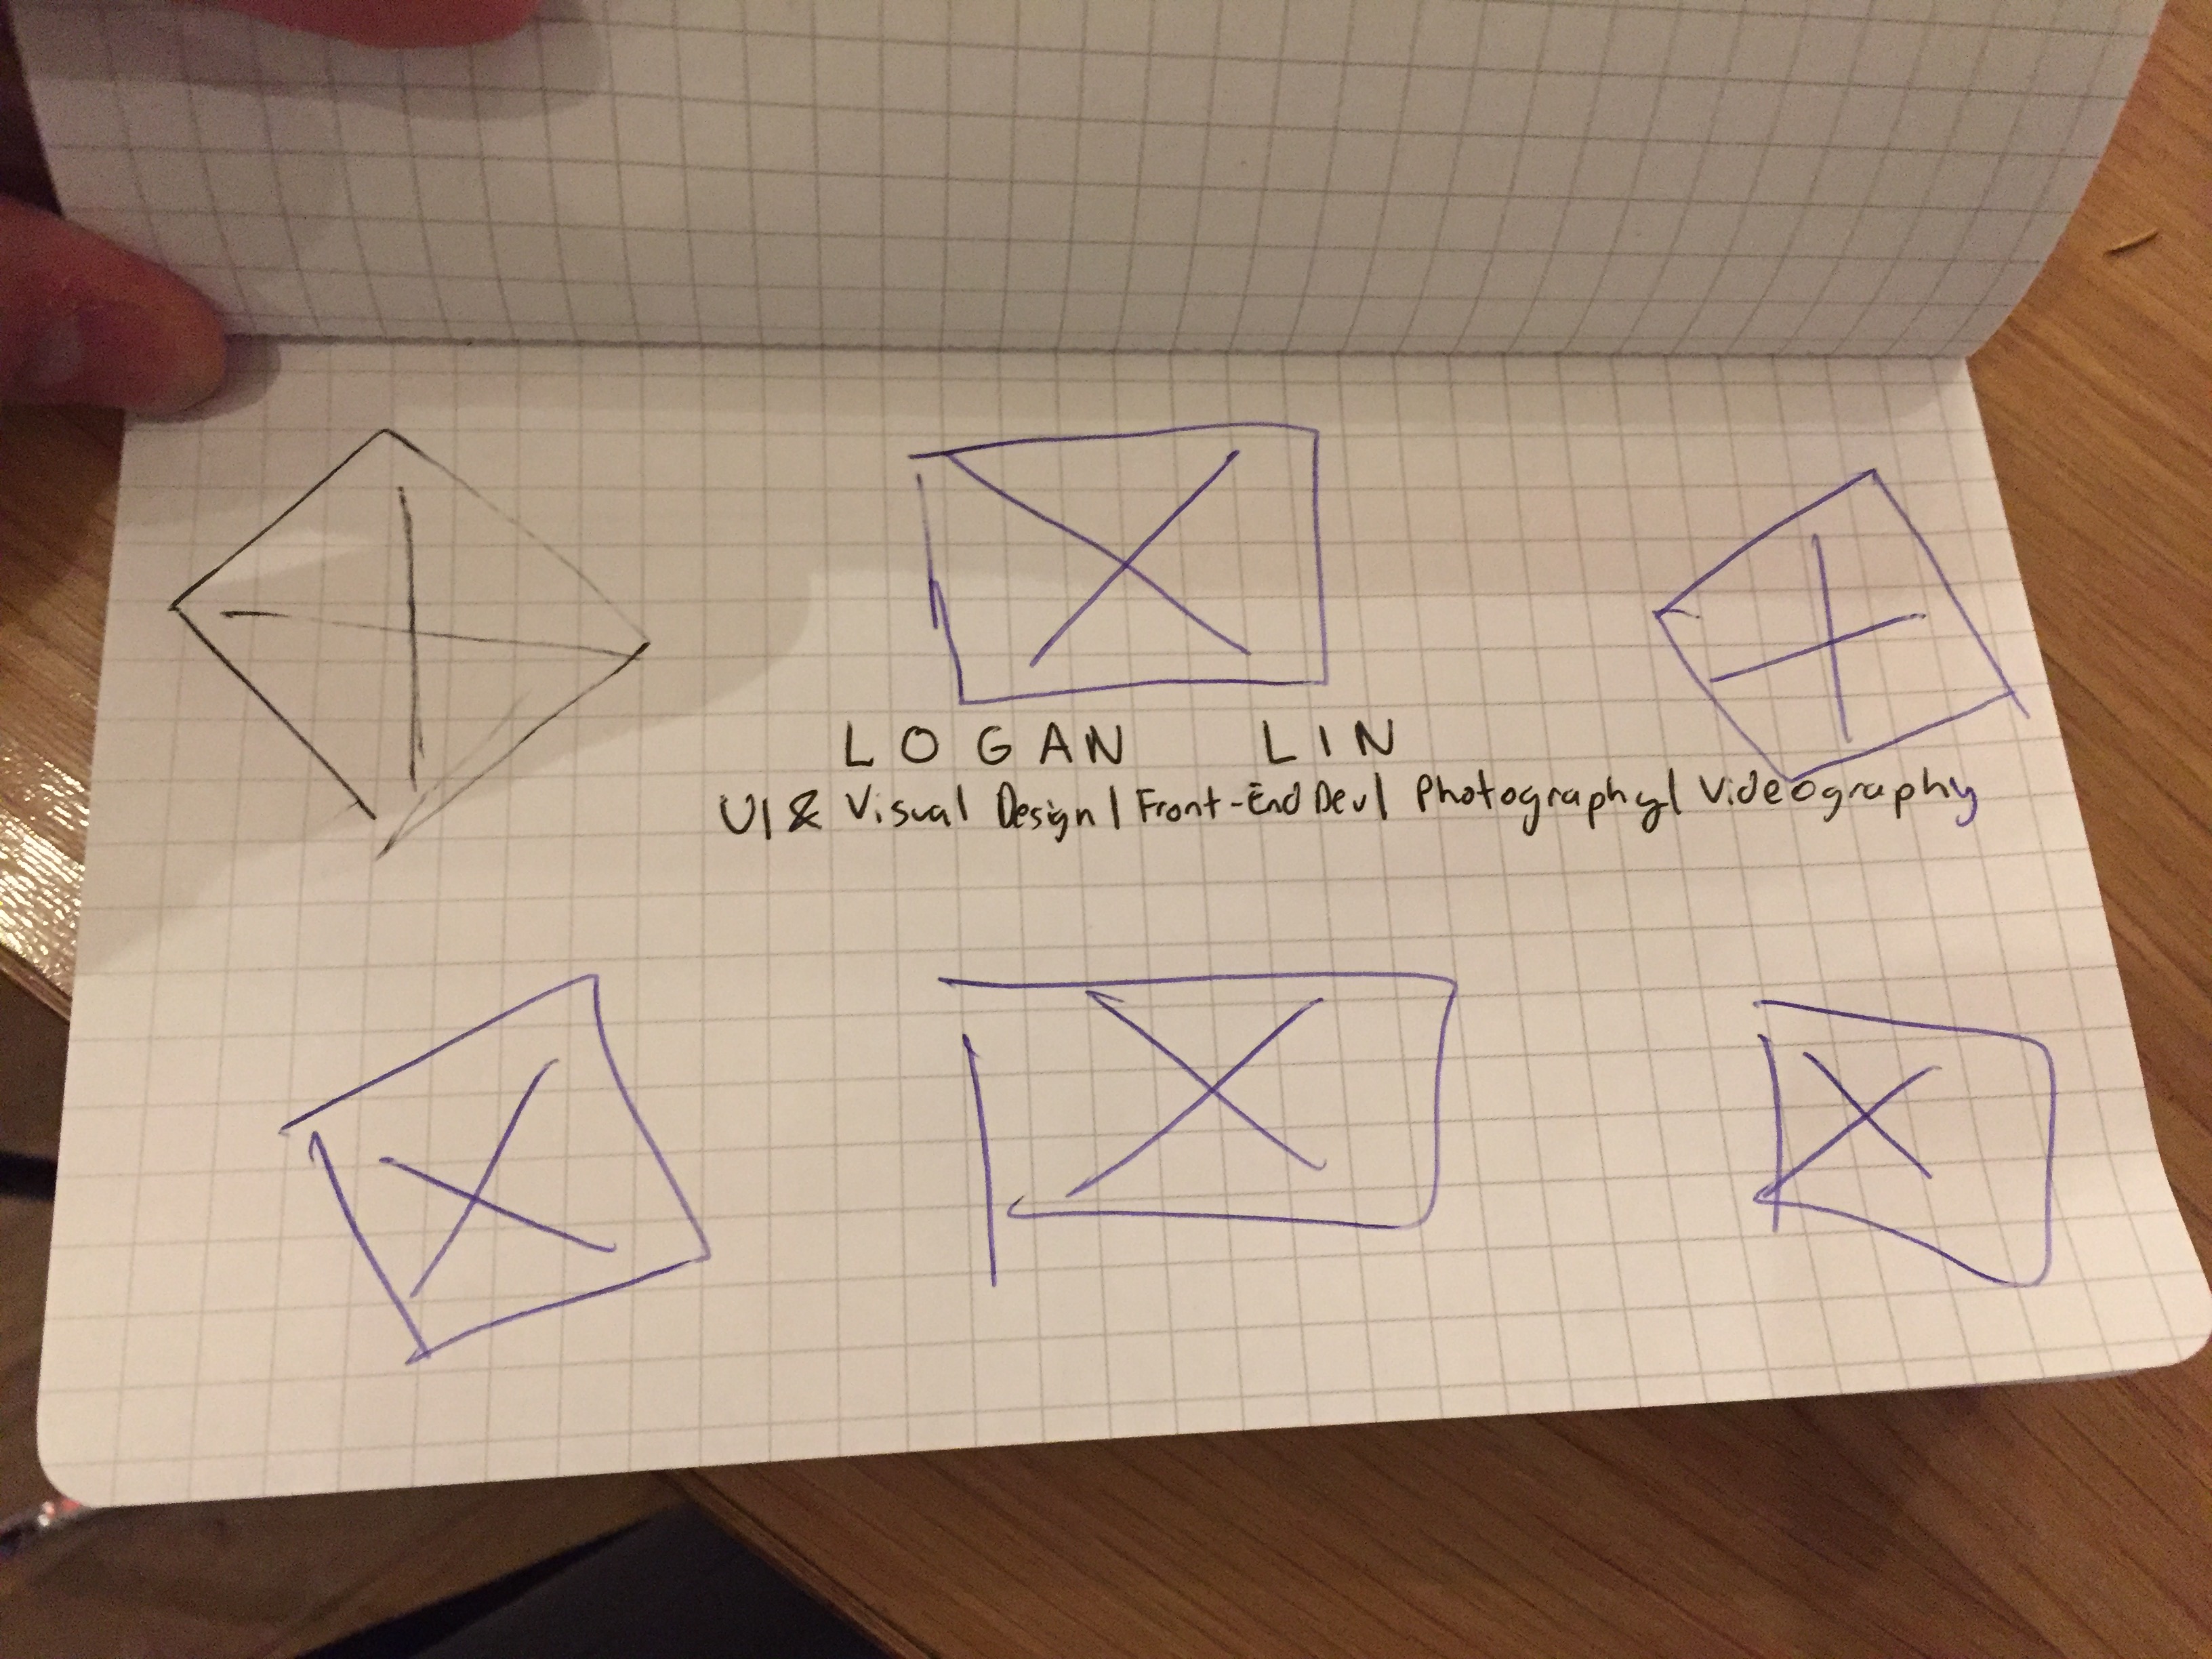 LOGAN LIN
UI & Visual Design | Front-End Dev | Photography | Videography